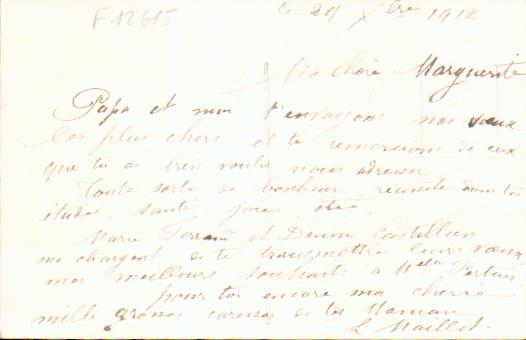 F12615
Ce 29 Xbre 1912
Ma chère Marguerite
Papa et moi t'envoyons nos vœux
les plus chers et te remercions de ceux
que tu as bien voulu nous adresser
Toute sorte de bonheur, réussite dans tes
études, santé, joie, etc,
Marie Ferrand et Denise Castillon
me chargent de te transmettre leurs vœux
mes meilleurs souhaits à
pour toi encore ma chérie
mille grosses caresses de ta Maman
L Maillet